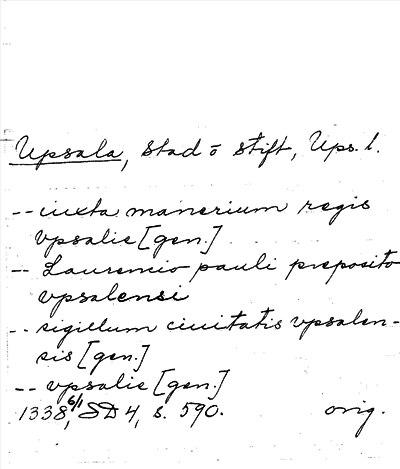 Upsala, Stad o stift, Ups. l.
-- iuxta manerium regis
vpsalie [gen.]
-- Laurencio pauli preposito
vpsalensi
-- sigillum ciuitatis vpsalen-
sis [gen.]
-- vpsalie [gen.]
1338 6/1, SD 4, s. 590. orig.